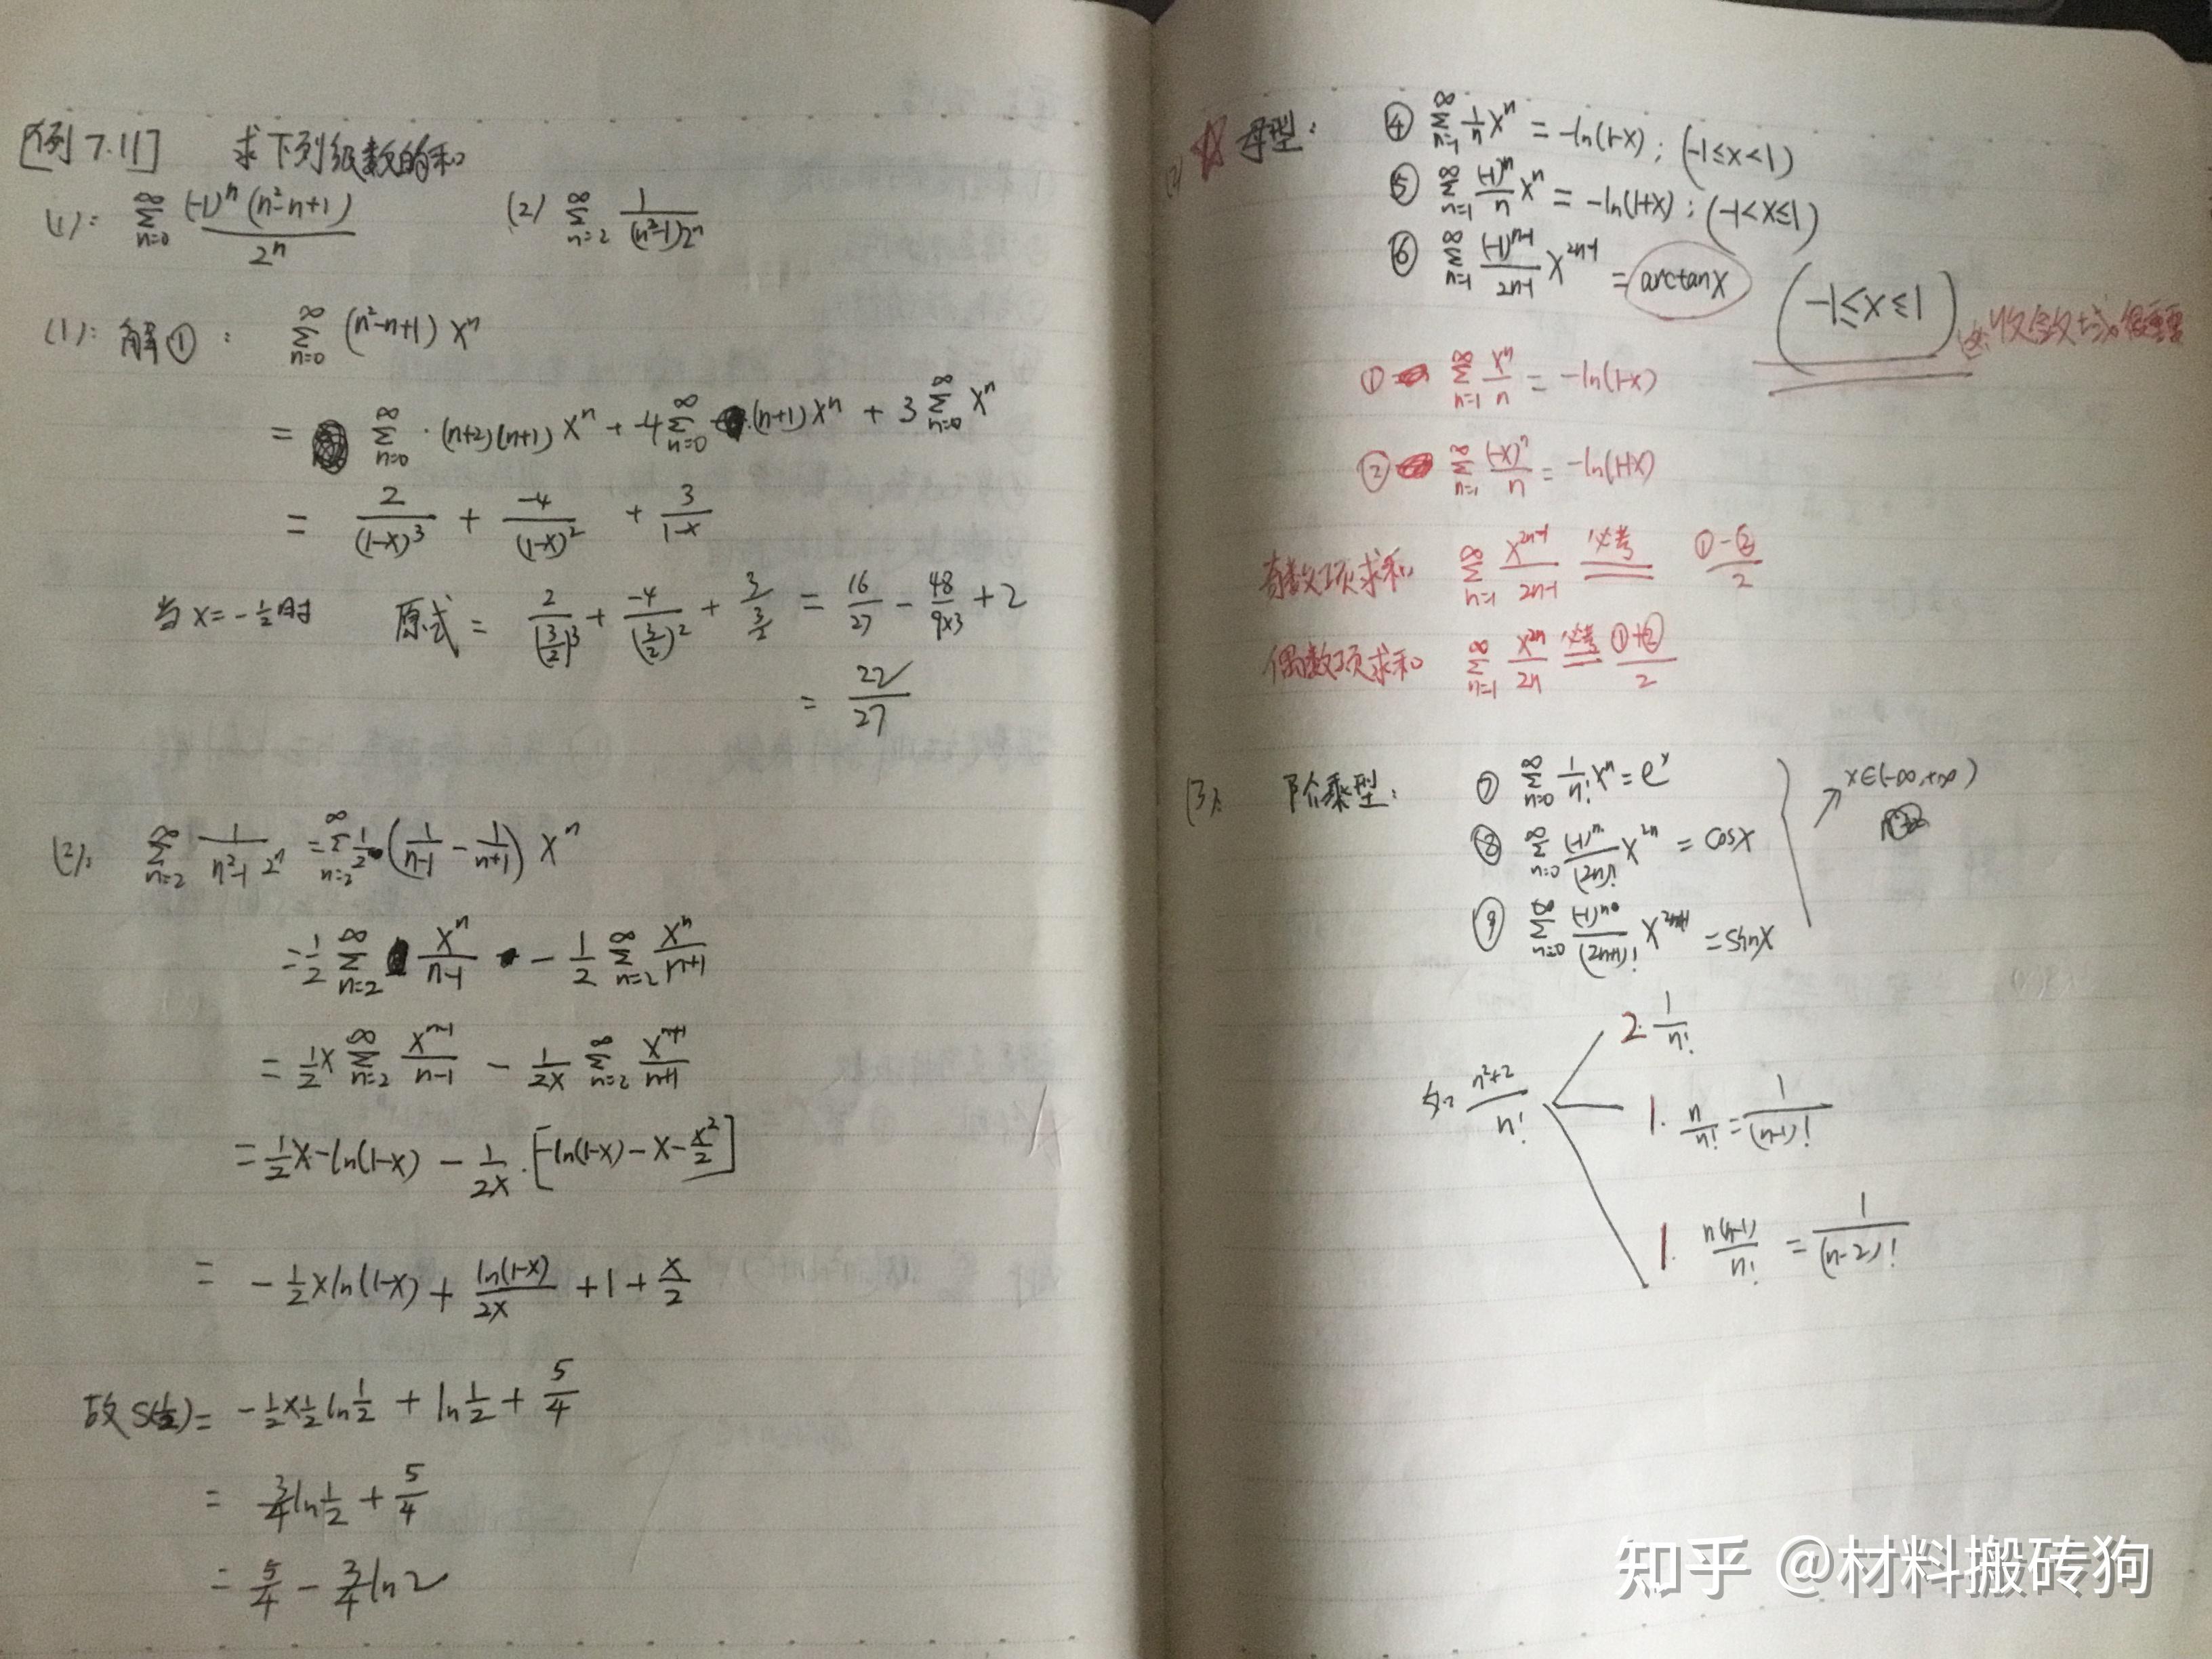 [例7.11] 求下列级数的和
(1): ∑_{n=0}^{∞} (-1)^n (n²-n+1) / 2^n (2) ∑_{n=2}^{∞} 1/((n²-1)2^n)
(1): 解①: ∑_{n=0}^{∞} (n²-n+1) x^n
= ∑_{n=0}^{∞} · (n+2)(n+1) x^n + -4∑_{n=0}^{∞} (n+1) x^n + 3∑_{n=0}^{∞} x^n
= 2/(1-x)³ + -4/(1-x)² + 3/(1-x)
当 x=-1/2 时 原式 = 2/(3/2)³ + -4/(3/2)² + 3/(3/2) = 16/27 - 48/(9×3) + 2
= 22/27
(2): ∑_{n=2}^{∞} 1/(n²-1 2^n) = ∑_{n=2}^{∞} 1/2 · (1/(n-1) - 1/(n+1)) x^n
= 1/2 ∑_{n=2}^{∞} x^n/(n-1) - 1/2 ∑_{n=2}^{∞} x^n/(n+1)
= 1/2 x ∑_{n=2}^{∞} x^{n-1}/(n-1) - 1/(2x) ∑_{n=2}^{∞} x^{n+1}/(n+1)
= 1/2 x·-ln(1-x) - 1/(2x) · [-ln(1-x) - x - x²/2]
= -1/2 x ln(1-x) + ln(1-x)/(2x) + 1 + x/2
故 S(1/2) = -1/2×1/2 ln 1/2 + ln 1/2 + 5/4
= 3/4 ln 1/2 + 5/4
= 5/4 - 3/4 ln2
(2) ☆ 母型: ④ ∑_{n=1}^{∞} 1/n x^n = -ln(1-x); (-1≤x<1)
⑤ ∑_{n=1}^{∞} (-1)^n/n x^n = -ln(1+x); (-1<x≤1)
⑥ ∑_{n=1}^{∞} (-1)^{n-1}/(2n-1) x^{2n-1} = arctanx (-1≤x≤1) 收敛域很重要
① ∑_{n=1}^{∞} x^n/n = -ln(1-x)
② ∑_{n=1}^{∞} (-x)^n/n = -ln(1+x)
奇数项求和 ∑_{n=1}^{∞} x^{2n-1}/(2n-1) 必考 (①-②)/2
偶数项求和 ∑_{n=1}^{∞} x^{2n}/2n 必考 (①+②)/2
(3): 阶乘型: ⑦ ∑_{n=0}^{∞} 1/n! x^n = e^x
x∈(-∞,+∞)
⑧ ∑_{n=0}^{∞} (-1)^n/(2n)! x^{2n} = cosx
⑨ ∑_{n=0}^{∞} (-1)^n/(2n+1)! x^{2n+1} = sinx
2· 1/n!
(n²+2)/n!
1· n/n! = 1/(n-1)!
1· n(n-1)/n! = 1/(n-2)!
知乎 @材料搬砖狗